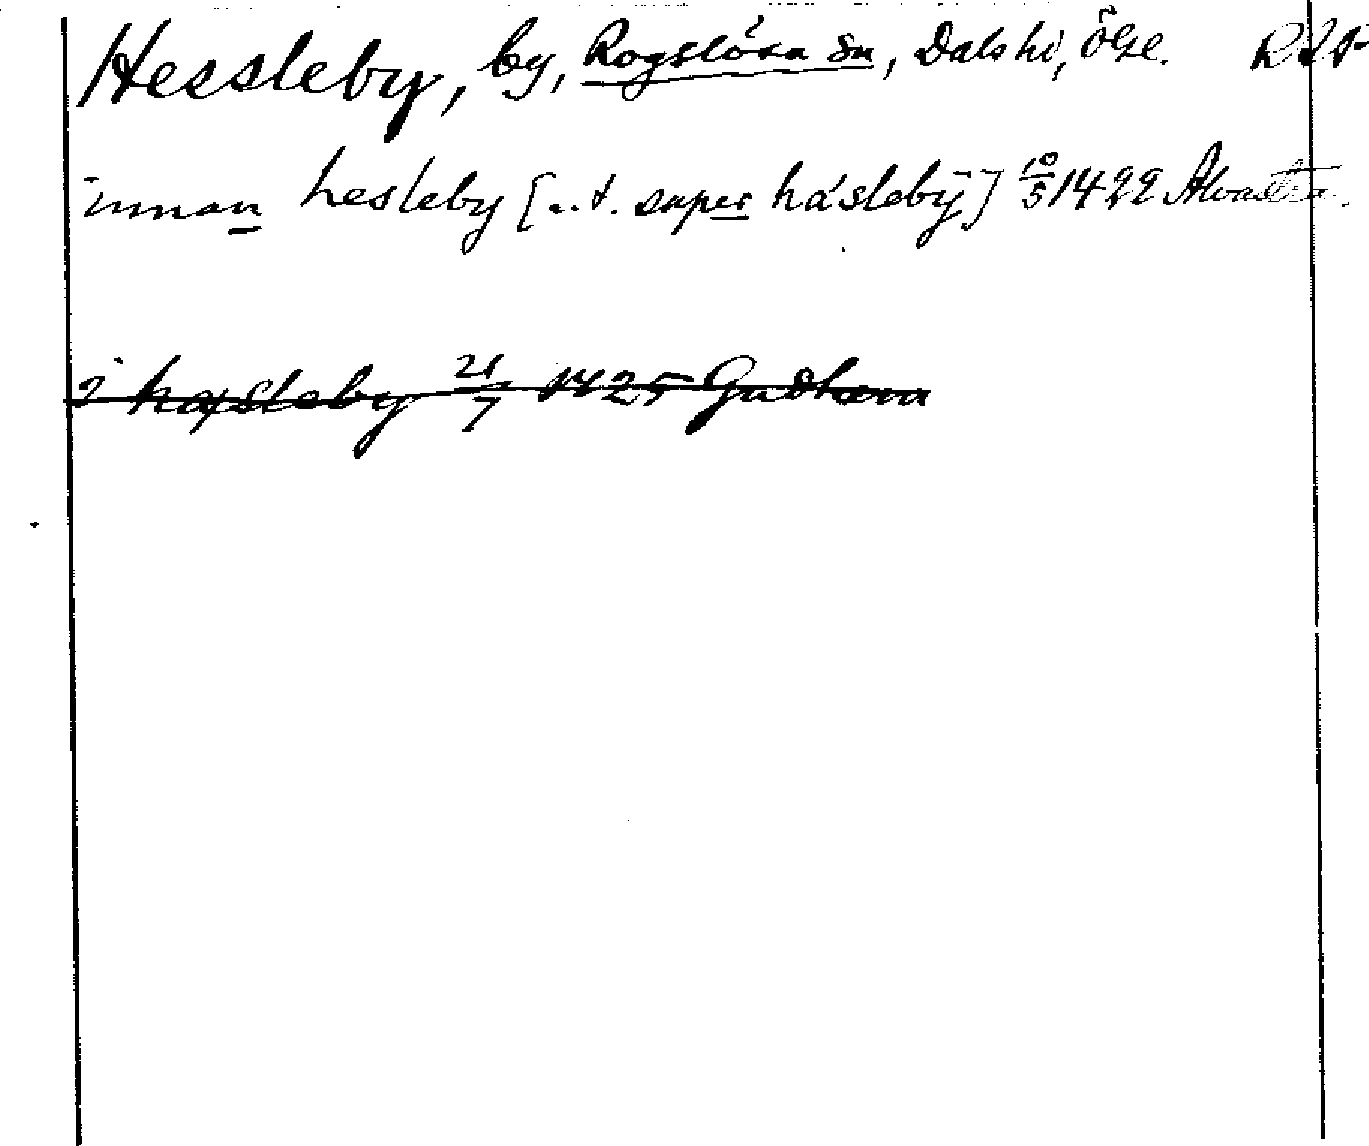 Hessleby, by, Rogslösa sn, Dals hd, Ögl. RAP
innan hesleby [a.t. super hásleby] 10/5 1422 Alvastra.
i hæsleby 21/7 1425 Gudhem